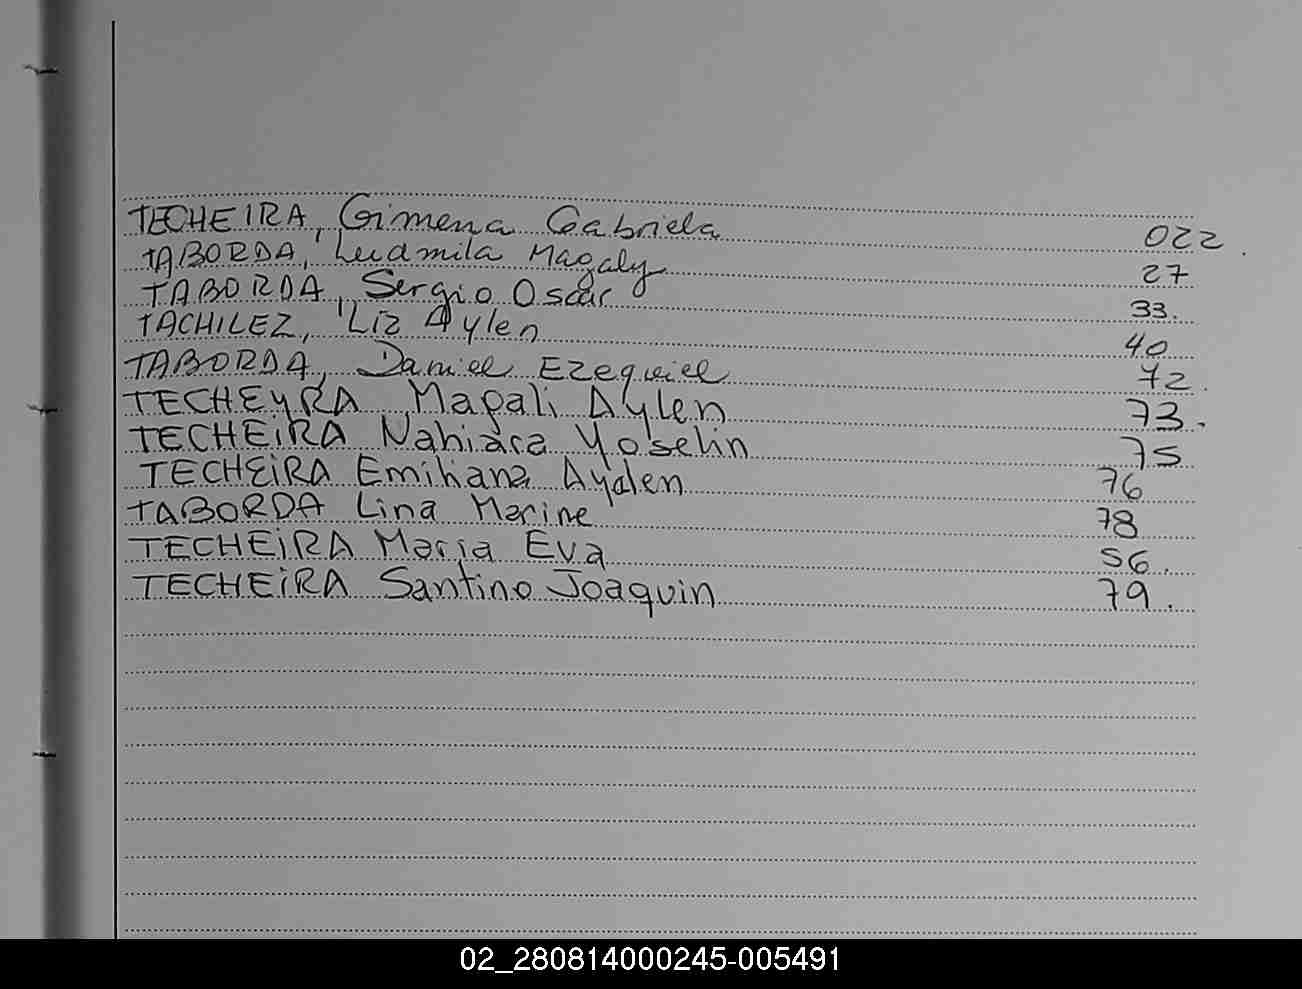 TECHEIRA, Gimena Gabriela 022
TABORDA, Ludmila Magaly 27
TABORDA, Sergio Oscar 33.
TACHILEZ, Liz Aylen 40
TABORDA, Daniel Ezequiel 72.
TECHEYRA, Magali Aylen 73.
TECHEIRA Nahiara Yoselin 75
TECHEIRA Emihana Aydlen 76
TABORDA Lina Marine 78
TECHEIRA Maria Eva 56.
TECHEIRA Santino Joaquin 79.
02_280814000245-005491